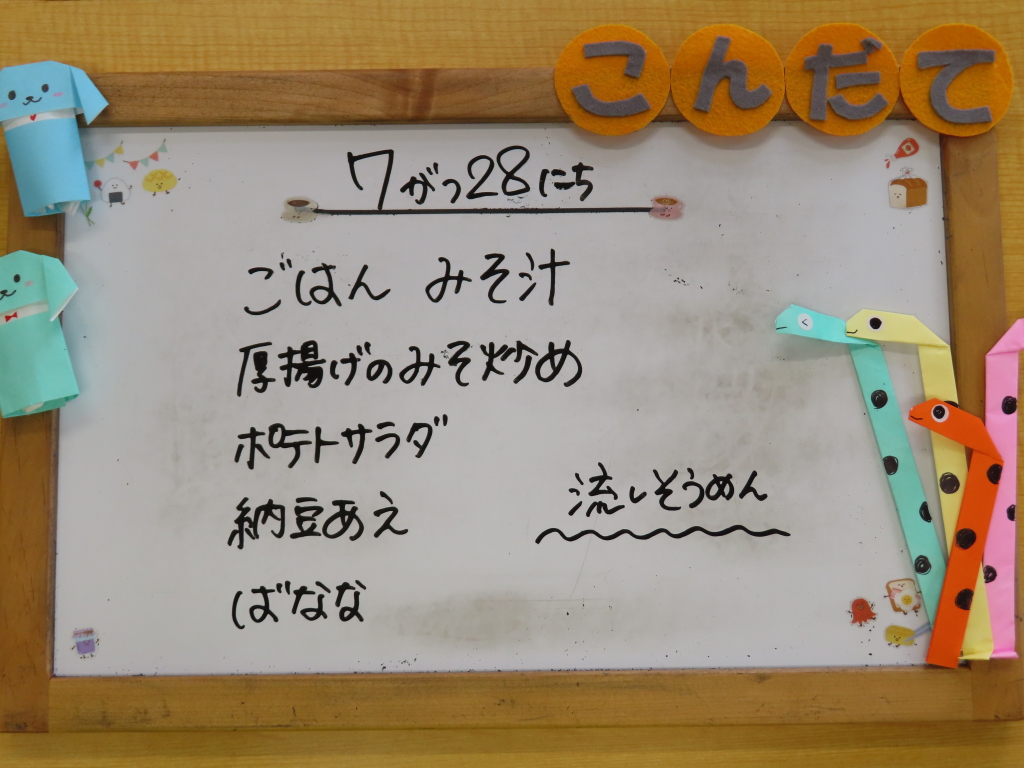 こんだて
7がつ28にち
ごはん みそ汁
厚揚げのみそ炒め
ポテトサラダ
納豆あえ
流しそうめん
ばなな